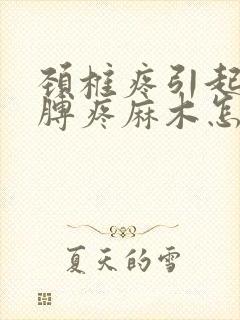 颈椎疼引起
脾疼麻木怎
夏天的雪